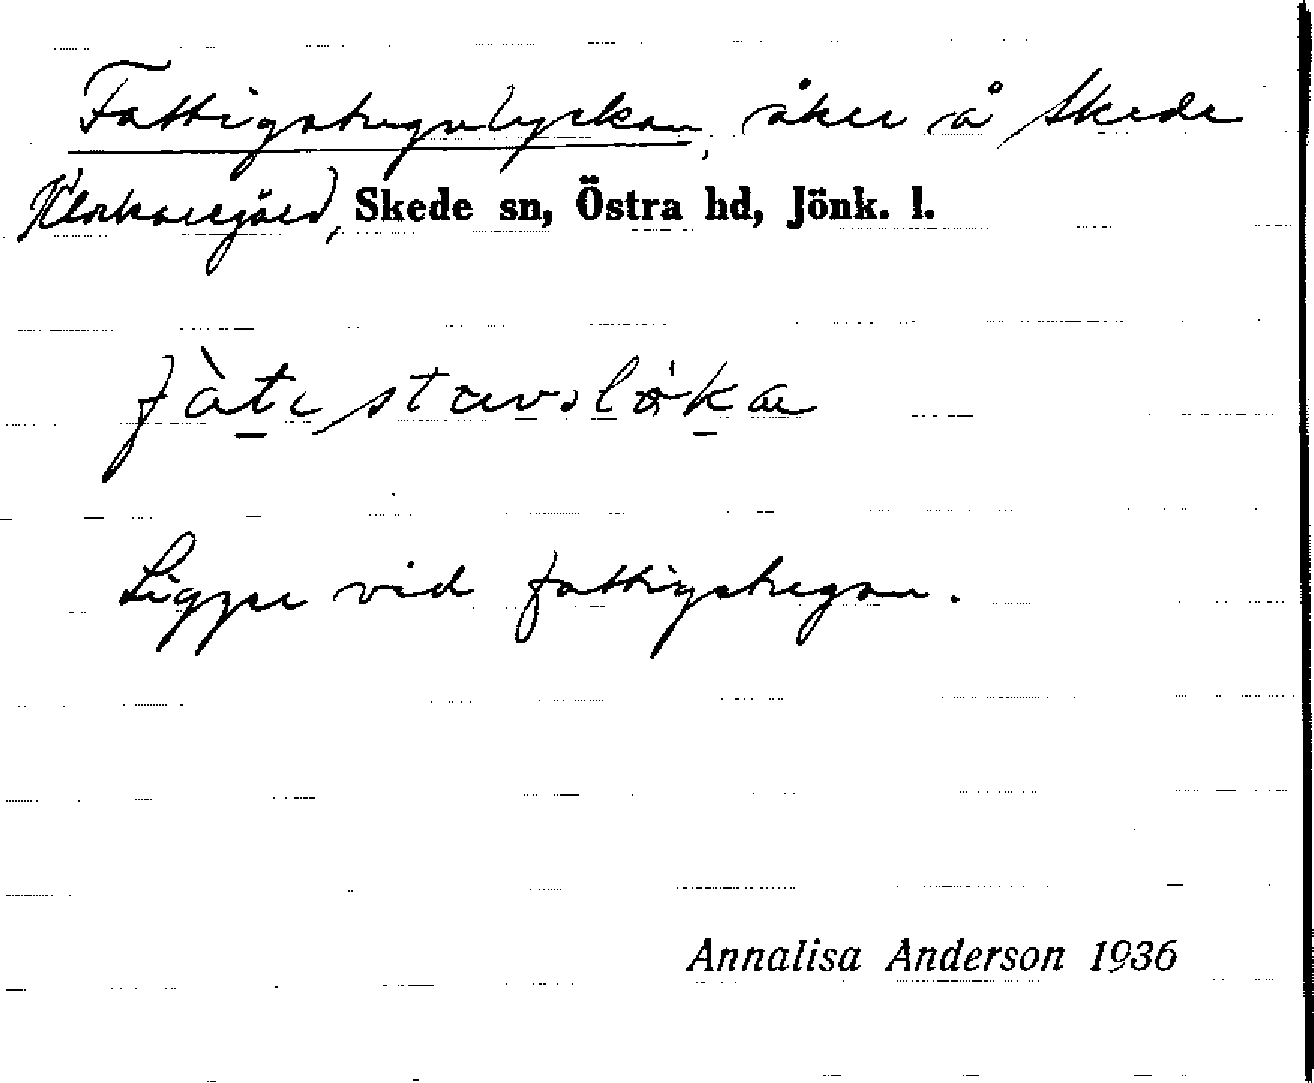 Fattigstugulyckan, åker å Skede
Klockaregård, Skede sn, Östra hd, Jönk. l.
Ligger vid fattigstugan.
Annalisa Anderson 1936